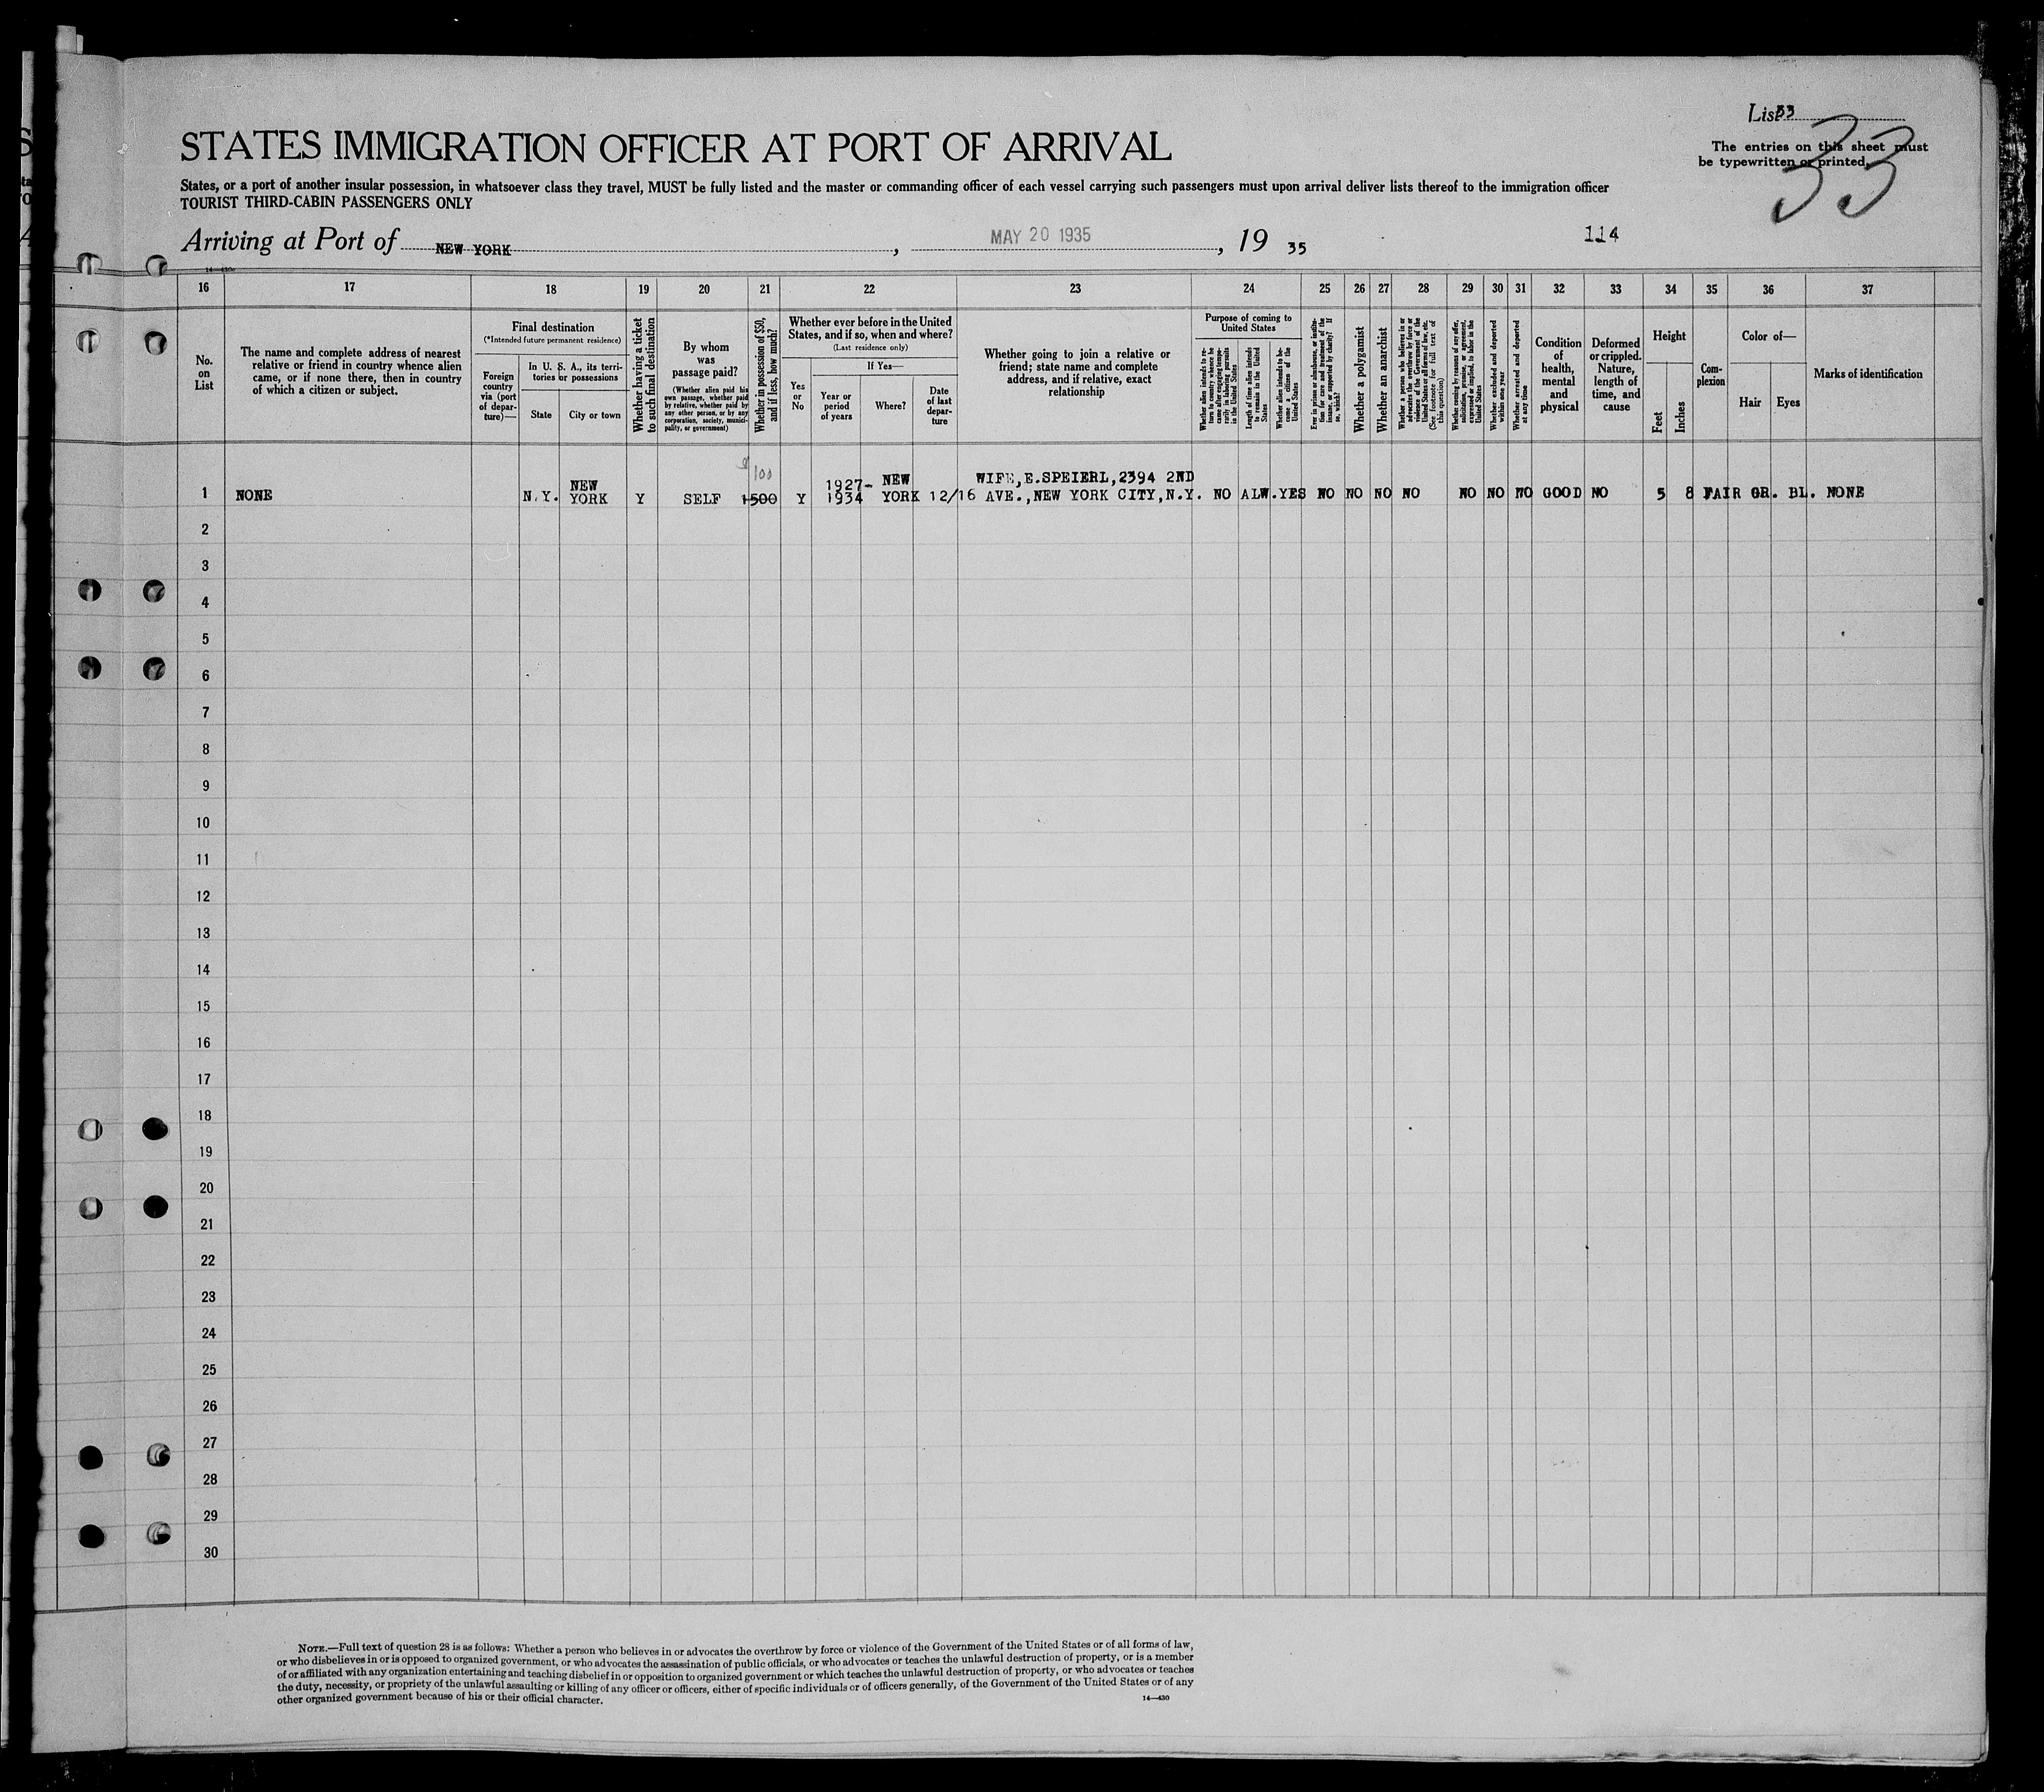 List 33
33
STATES IMMIGRATION OFFICER AT PORT OF ARRIVAL
The entries on this sheet must
be typewritten or printed.
States, or a port of another insular possession, in whatsoever class they travel, MUST be fully listed and the master or commanding officer of each vessel carrying such passengers must upon arrival deliver lists thereof to the immigration officer
TOURIST THIRD-CABIN PASSENGERS ONLY
Arriving at Port of NEW YORK, MAY 20 1935, 19 35
114
14—430
16 17 18 19 20 21 22 23 24 25 26 27 28 29 30 31 32 33 34 35 36 37
No. on List
The name and complete address of nearest
relative or friend in country whence alien
came, or if none there, then in country
of which a citizen or subject.
Final destination
(*Intended future permanent residence)
Foreign country via (port of departure)—
In U. S. A., its territories or possessions
State
City or town
Whether having a ticket to such final destination
By whom was passage paid?
(Whether alien paid his own passage, whether paid by relative, whether paid by any other person, or by any corporation, society, municipality, or government)
Whether in possession of $50, and if less, how much?
Whether ever before in the United
States, and if so, when and where?
(Last residence only)
Yes or No
If Yes—
Year or period of years
Where?
Date of last departure
Whether going to join a relative or
friend; state name and complete
address, and if relative, exact
relationship
Purpose of coming to United States
Whether alien intends to return to country whence he came after engaging temporarily in laboring pursuits in the United States
Length of time alien intends to remain in the United States
Whether alien intends to become a citizen of the United States
Ever in prison or almshouse, or institution for care and treatment of the insane, or supported by charity? If so, which?
Whether a polygamist
Whether an anarchist
Whether a person who believes in or advocates the overthrow by force or violence of the Government of the United States or all forms of law, etc. (See footnote for full text of this question)
Whether coming by reason of any offer, solicitation, promise, or agreement, expressed or implied, to labor in the United States
Whether excluded and deported within one year
Whether arrested and deported at any time
Condition of health, mental and physical
Deformed or crippled. Nature, length of time, and cause
Height
Feet
Inches
Complexion
Color of—
Hair
Eyes
Marks of identification
$ 100
1 NONE N.Y. NEW YORK Y SELF 1500 Y 1927-1934 NEW YORK 12/16 WIFE,E.SPEIERL,2394 2ND AVE.,NEW YORK CITY,N.Y. NO ALW. YES NO NO NO NO NO NO NO GOOD NO 5 8 FAIR GR. BL. NONE
2
3
4
5
6
7
8
9
10
11
12
13
14
15
16
17
18
19
20
21
22
23
24
25
26
27
28
29
30
NOTE.—Full text of question 28 is as follows: Whether a person who believes in or advocates the overthrow by force or violence of the Government of the United States or of all forms of law,
or who disbelieves in or is opposed to organized government, or who advocates the assassination of public officials, or who advocates or teaches the unlawful destruction of property, or is a member
of or affiliated with any organization entertaining and teaching disbelief in or opposition to organized government or which teaches the unlawful destruction of property, or who advocates or teaches
the duty, necessity, or propriety of the unlawful assaulting or killing of any officer or officers, either of specific individuals or of officers generally, of the Government of the United States or of any
other organized government because of his or their official character.
14—430